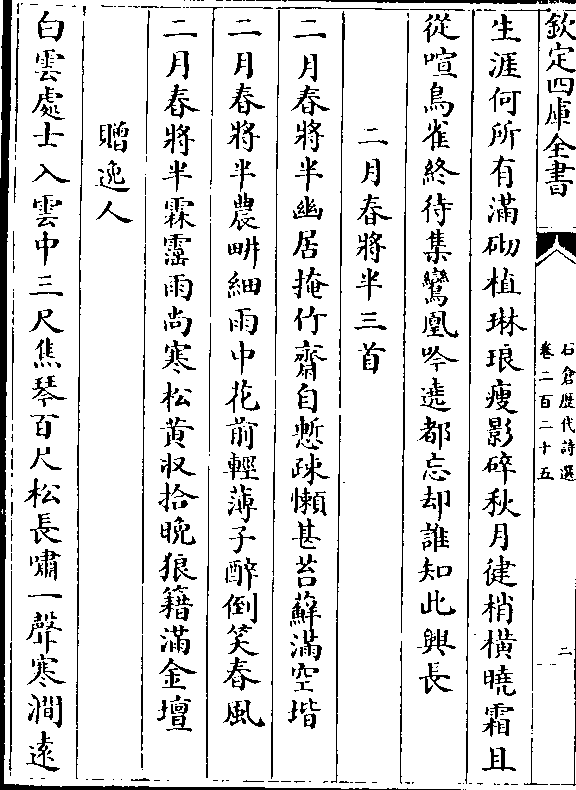 欽定四庫全書
石倉歷代詩選
卷二百二十五
二
生涯何所有滿砌植琳琅瘦影碎秋月健梢橫曉霜且
從喧鳥雀終待集鸞凰吟遶都忘却誰知此興長
二月春將半三首
二月春將半幽居掩竹齋自慙疎懶甚苔蘚滿空堦
二月春將半農畊細雨中花前輕薄子醉倒笑春風
二月春將半霖霪雨尚寒松黃収拾晚狼籍滿金壇
贈逸人
白雲處士入雲中三尺焦琴百尺松長嘯一聲寒澗遠